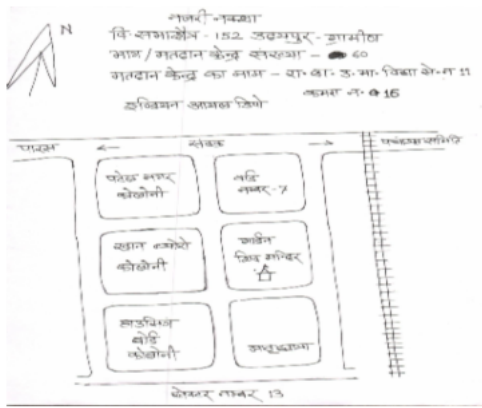 नजरी नक्शा
N
वि. सभा क्षेत्र - 152 उदयपुर - ग्रामीण
भाग / मतदान केन्द्र संख्या - 60
मतदान केन्द्र का नाम - रा. बा. उ. मा. विद्या से. न 11
कमरा न. 15
इण्डियन आयल डिपो
पारस
← सड़क →
पटेल नगर
कोलोनी
वार्ड
नम्बर - 7
खान
कोलोनी
शिव मन्दिर
हाउसिंग
बोर्ड
कोलोनी
सेक्टर नम्बर 13